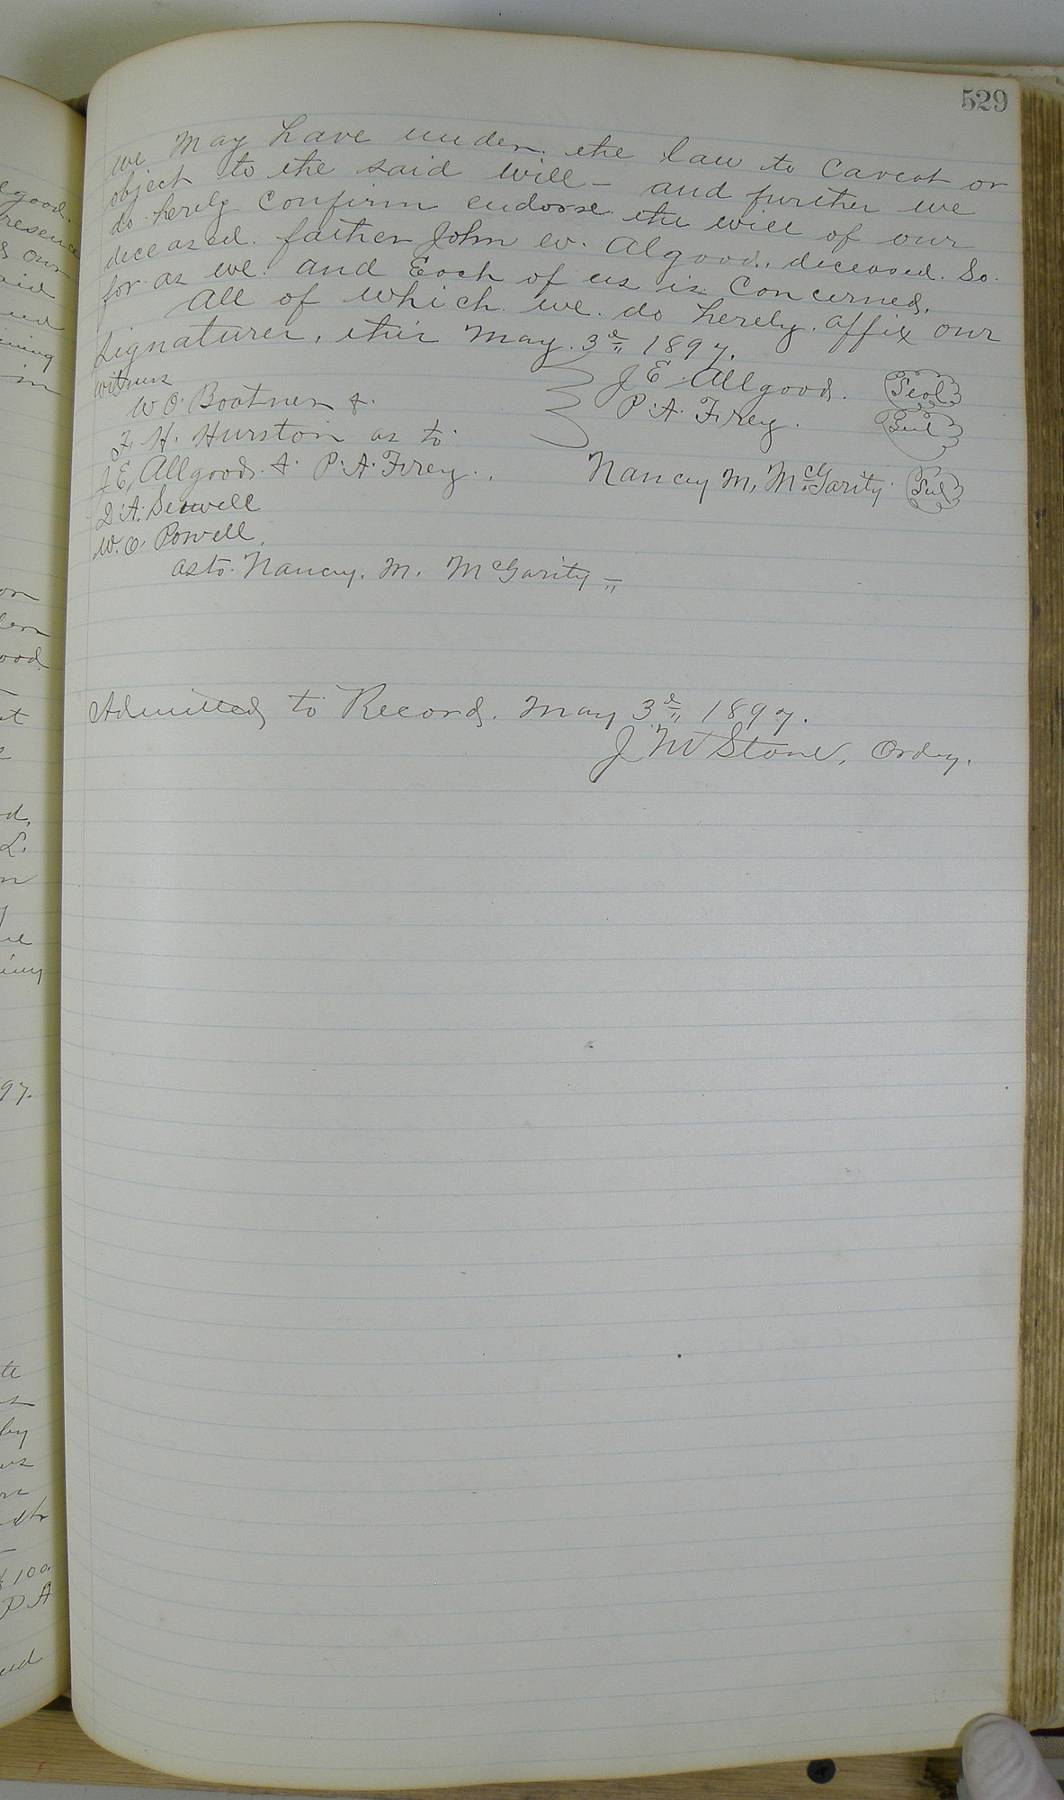 529
we may have under the law to Caveat or
object to the said will - and further we
do hereby Confirm endorse the will of our
deceased father John W. Algood, deceased. So.
for as we and Each of us is Concerned,
All of which we do hereby affix our
Signatures, this May 3d 1897.
witness
W O. Boatner &
F. H. Hurston as to
J E, Allgood & P. A. Frey.
D. A. Sewell
W. O. Powell
as to Nancy. M. McGarity
J E Allgood. Seal
P. A. Frey. Seal
Nancy M. McGarity Seal
Admitted to Record. May 3d 1897.
J W Stone, Ordy.